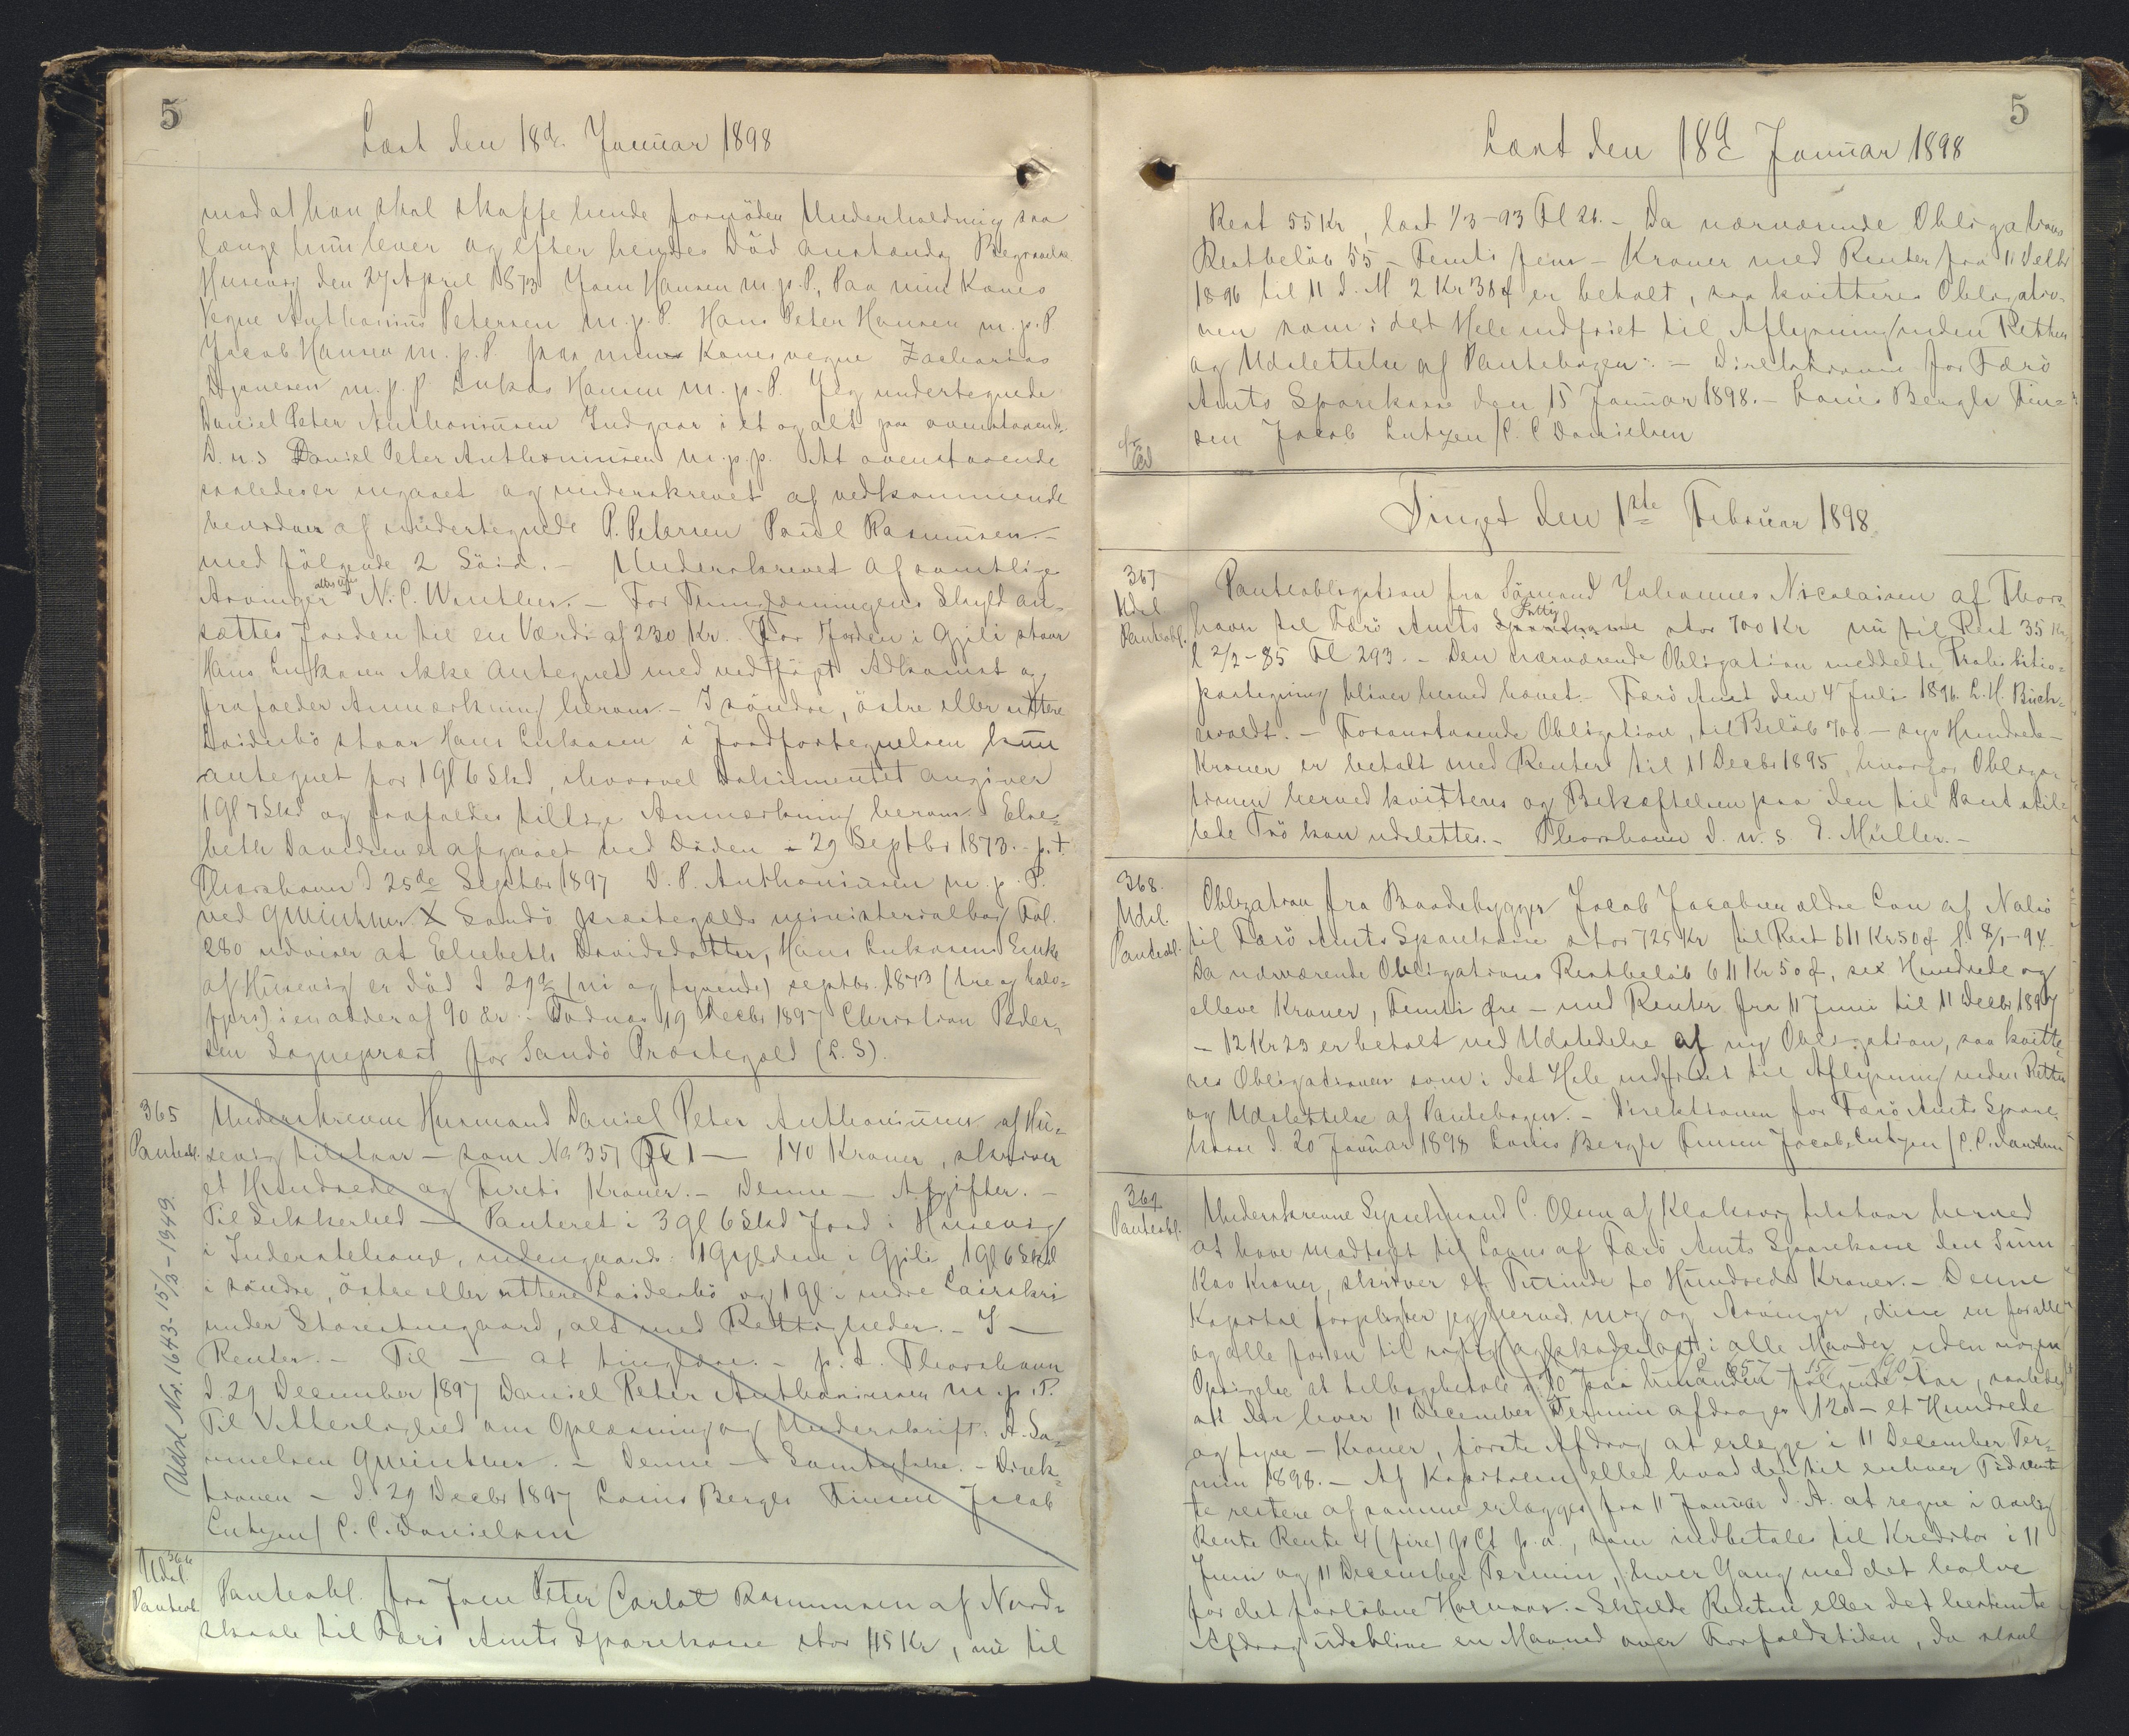 5
Læst den 18d. Januar 1898
mod at han skal skaffe hende fornöden Underholdning saa
længe hun lever og efter hendes Död anstændig Begravelse
Husevig den 27 April 1873 Joen Hansen m. p. P., Paa min Kones
Vegne Anthonius Petersen m. p. P. Hans Peter Hansen m. p. P
Jacob Hansen m. p. P. paa min Kones vegne Zacharias
m. p. P Lukas Hansen m. p. P. Jeg undertegnede
Daniel Peter Anthoniusen Indgaar i et og alt paa ovenstaaende
D. u. s Daniel Peter Anthoniusen m. p. p. At ovenstaaende
saaledes er ingaaet og underskrevet af vedkommende
bevidner af undertegnede P. Petersen Poul Rasmussen. -
med fölgende 2 . - Underskrevet af samtlige
Arvinger N. C. Winther. - For Skyld an-
sættes Jorden til en Værdi af 230 Kr. For Jorden i Gjili staar
Hans Lukasen ikke antegnet med vedföiet Adkomst og
frafalder Anmærkning herom. - I söndre, östre eller yttere
Loidesbö staar Hans Lukasen i Jordfortegnelsen kun
antegnet for 1 gl 6 Skd, hvorvel Dokumentet angiver
1 gl 7 Skd og frafaldes tillige Anmærkning herom. Else-
beth Davidsen er afgaaet ved Döden - 29 Septbr 1873. - p. t
Thorshavn d 25de Septbr 1897 D. P. Anthoniusen m. p. P.
ved GWinther X Sandö præstegælds ministerialbog Fol.
280 udviser at Elsebeth Davidsdatter, Hans Lukasens Enke
af Husevig er död d 29d (ni og tyvende) septbr. 1873 (tre og halv-
fjers) i en alder af 90 år. Todnes 19 Decbr 1897 Christian Peder-
sen Sognepræst for Sandö Præstegæld (L. S).
365
Panteobl.
Underskrevne Husmand Daniel Peter Anthoniusen af Hu-
sevig tilstaar - som No. 351 Fl 1 - 140 Kroner, skriver
et Hundrede og Fireti Kroner. - Denne - Afgifter. -
Til Sikkerhed - Panteret i 3 gl 6 Skd Jord i Husevig
i Inderstehauge, udengaards: 1 Gylden i Gjili, 1 gl 6 Skd
i söndre, östre eller yttere Loidesbö og 1 gl i indre
under Storestuegaard, alt med Rettigheder. - I -
Renter. - Til - at tinglæse. - p. t. Thorshavn
d. 29 December 1897 Daniel Peter Anthoniusen m. p. P.
Til Vitterlighed om Oplæsning og Underskrift: A. Sa-
muelsen GWinther. - Denne - Samtykke. - Direk-
tionen - d. 29 Decbr 1897 Louis Bergh Finsen Jacob
Lützen / C. C. Danielsen
Udsl Nr. 1643 - 15/3 - 1949.
366
Udsl
Panteobl.
Panteobl. fra Joen Peter Carlot Rasmussen af Nord-
skaale til Færö Amts Sparekasse stor 115 Kr, nu til
5
Læst den 18d Januar 1898
Rest 55 Kr, læst 1/3-93 Fl 26. - Da nærværende Obligations
Restbelöb 55 - Femti fem - Kroner med Renter fra 11 Decbr
1896 til 11 d. M 2 Kr 38 ø er betalt, saa kvitteres Obligatio-
nen som i det Hele indfriet til Aflysning inden Retten
og Udslettelse af Pantebogen. - Direktionen for Færö
Amts Sparekasse den 15 Januar 1898. - Louis Bergh Fin-
sen Jacob Lutzen / C. C Danielsen
Tinget den 1ste Februar 1898
367
Udsl
Panteobl.
Panteobligation fra Sömand Johannes Nicolaisen af Thors-
havn til Færö Amts Fattig stor 700 Kr nu til Rest 35 Kr
l 2/2-85 Fl 293. - Den nærværende Obligation meddelte Prohibitiv-
paategning bliver herved hævet. Færö Amt den 4 Juli 1896. C. H. Buch-
waldt. - Foranstaaende Obligation, til Belöb 700 - syv Hundrede -
Kroner er betalt med Renter til 11 Decbr 1895, hvorfor Obliga-
tionen herved kvitteres og Bekæftelsen paa den til Pant stil-
lede Trö kan udslettes. - Thorshavn d. u. s. E. Müller. -
368.
Udsl
Panteobl.
Obligation fra Baadebygger Jacob Jacobsen ældre Søn af Nolsö
til Færö Amts Sparekasse stor 725 Kr til Rest 611 Kr 50 ø l. 8/1-94.
Da nærværende Obligations Restbelöb 611 Kr 50 ø, sex Hundrede og
elleve Kroner, Femti Øre - med Renter fra 11 Juni til 11 Decbr 1897
- 12 Kr 23 er betalt ved Udstedelse af ny Obligation, saa kvitte-
res Obligationen som i det Hele indfriet til Aflysning inden Retten
og Udslettelse af Pantebogen. - Direktionen for Færö Amts Spare-
kasse d. 20 Januar 1898 Louis Bergh Finsen Jacob Lutzen / C. C. Danielsen
369
Panteobl.
Underskrevne Sysselmand C. Olsen af Klaksvig tilstaar herved
at have modtaget til Laans af Færö Amts Sparekasse den Sum
1200 Kroner, skriver et Tusinde to Hundrede Kroner. - Denne
Kapital forpligter jeg herved mig og Arvinger, een for alle
og alle for en til rigtig og skadeslöst i alle Maader uden nogen
Opsigelse at tilbagebetale i 10 paa hinanden fölgende Aar, saaledes
at der hver 11 December Termin afdrages 120 - et Hundrede
og tyve - Kroner, förste Afdrag at erlægge i 11 December Ter-
min 1898. - Af Kapitalen eller hvad der til enhver Tid maat-
te restere af samme erlægges fra 11 Januar d. A. at regne i aarlig
Rente Rente 4 (fire) pCt p. a., som indbetales til Kreditor i 11
Juni og 11 December Termin, hver Gang med det halve
for det forlöbne Halvaar. - Skulde Renten eller det bestemte
Afdrag udeblive en Maaned over Forfaldstiden, da skal